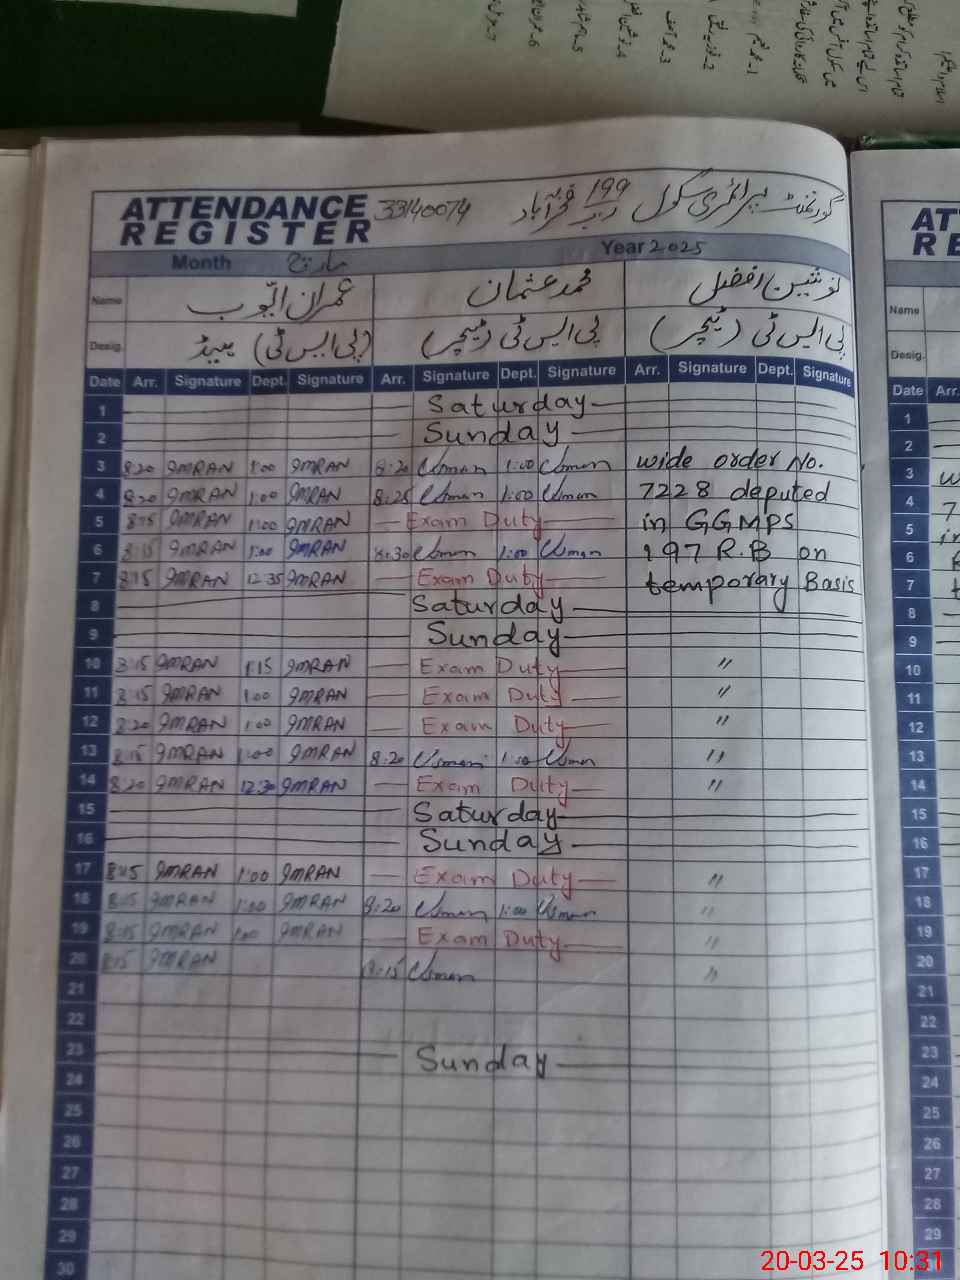 ATTENDANCE REGISTER 33140074 گورنمنٹ پرائمری سکول 199 ر ب
Month مارچ Year 2025
Name عمران ایوب محمد عثمان نوشین افضل
Desig. (پی ایس ٹی) ہیڈ پی ایس ٹی (ٹیچر) پی ایس ٹی (ٹیچر)
Date Arr. Signature Dept. Signature Arr. Signature Dept. Signature Arr. Signature Dept. Signature
1 Saturday
2 Sunday
3 8:20 IMRAN 1:00 IMRAN 8:20 Usman 1:00 Usman wide order No.
4 8:20 IMRAN 1:00 IMRAN 8:25 Usman 1:00 Usman 7228 deputed
5 8:15 IMRAN 1:00 IMRAN Exam Duty in GGMPS
6 8:15 IMRAN 1:00 IMRAN 8:30 Usman 1:00 Usman 197 R.B on
7 8:15 IMRAN 12:35 IMRAN Exam Duty temporary Basis
8 Saturday
9 Sunday
10 8:15 IMRAN 1:15 IMRAN Exam Duty "
11 8:15 IMRAN 1:00 IMRAN Exam Duty "
12 8:20 IMRAN 1:00 IMRAN Exam Duty "
13 8:15 IMRAN 1:00 IMRAN 8:20 Usman 1:00 Usman "
14 8:20 IMRAN 12:30 IMRAN Exam Duty "
15 Saturday
16 Sunday
17 8:15 IMRAN 1:00 IMRAN Exam Duty "
18 8:15 IMRAN 1:00 IMRAN 8:20 Usman 1:00 Usman "
19 8:15 IMRAN 1:00 IMRAN Exam Duty "
20 8:15 IMRAN 8:15 Usman "
21
22
23 Sunday
24
25
26
27
28
29
30
AT
RE
Name
Desig.
Date Arr.
1
2
3
4
5
6
7
8
9
10
11
12
13
14
15
16
17
18
19
20
21
22
23
24
25
26
27
28
29
20-03-25 10:31